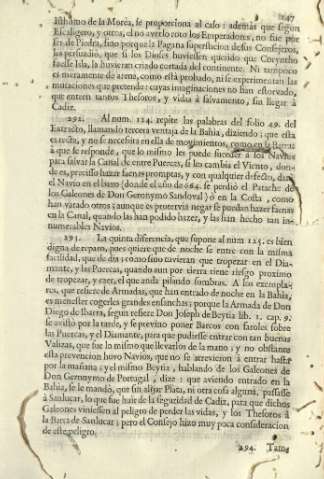 247
Isthomo de la Morea, se proporciona al caso: además que segun
Escaligero, y otros, el no averlo roto los Emperadores, no fue por
ser de Piedra, sino porque la Pagana supersticion de sus Consejeros,
les persuadiò, que si los Dioses huviessen querido que Coryntho
fuesse Isla, la huvieran criado cortada del continente. Ni tampoco
es meramente de arena, como està probado, ni se experimentan las
mutaciones que pretende: cuyas imaginaciones no han estorvado,
que entren tantos Thesoros, y vidas à salvamento, sin llegar à
Cadiz.
292. Al num. 124. repite las palabras del folio 49. del
Extracto, llamando tercera ventaja de la Bahia, diziendo; que esta
es recta, y no se necessita en ella de movimientos, como en la Barra:
à que se responde, que lo mismo les puede suceder à los Navios
para salvar la Canal de entre Puercas, si les cambia el Viento, don-
de es, preciso hazer faenas promptas, y con qualquier defecto, dan
el Navio en el baxo (donde el año de 664. se perdiò el Patache de
los Galeones de Don Geronymo Sandoval) ò en la Costa, como
han varado otros; aunque es protervia negar se puedan hazer faenas
en la Canal, quando las han podido hazer, y las han hecho tan in-
numerables Navios.
291. La quinta diferencia, que supone al num 125. es bien
digna de reparo, pues quiere que de noche se entre con la misma
facilidad, que de dia: como sino tuvieran que tropezar en el Dia-
mante, y las Puercas, quando aun por tierra tiene riesgo proximo
de tropezar, y caer, el que anda pisando sombras. A los exempla-
res, que refiere de Armadas, que han entrado de noche en la Bahia,
es menester cogerles grandes ensanchas; porque la Armada de Don
Diego de Ibarra, segun refiere Don Joseph de Beytia lib. 1. cap. 9.
se avistò por la tarde, y se previno poner Barcos con faroles sobre
las Puercas, y el Diamante, para que pudiesse entrar con tan buenas
Valizas, que fue lo mismo que llevarlos de la mano; y no obstante
esta prevencion huvo Navios, que no se atrevieron à entrar hasta
por la mañana; y el mismo Beytia, hablando de los Galeones de
Don Geronymo de Portugal, dize: que aviendo entrado en la
Bahia, se le mandò, que sin alijar Plata, ni otra cosa alguna, passasse
à Sanlucar, lo que fue salir de la seguridad de Cadiz, para que dichos
Galeones viniessen al peligro de perder las vidas, y los Thesoros à
la Barra de Sanlucar; pero el Consejo hizo muy poca consideracion
de este peligro.
294. Tam-